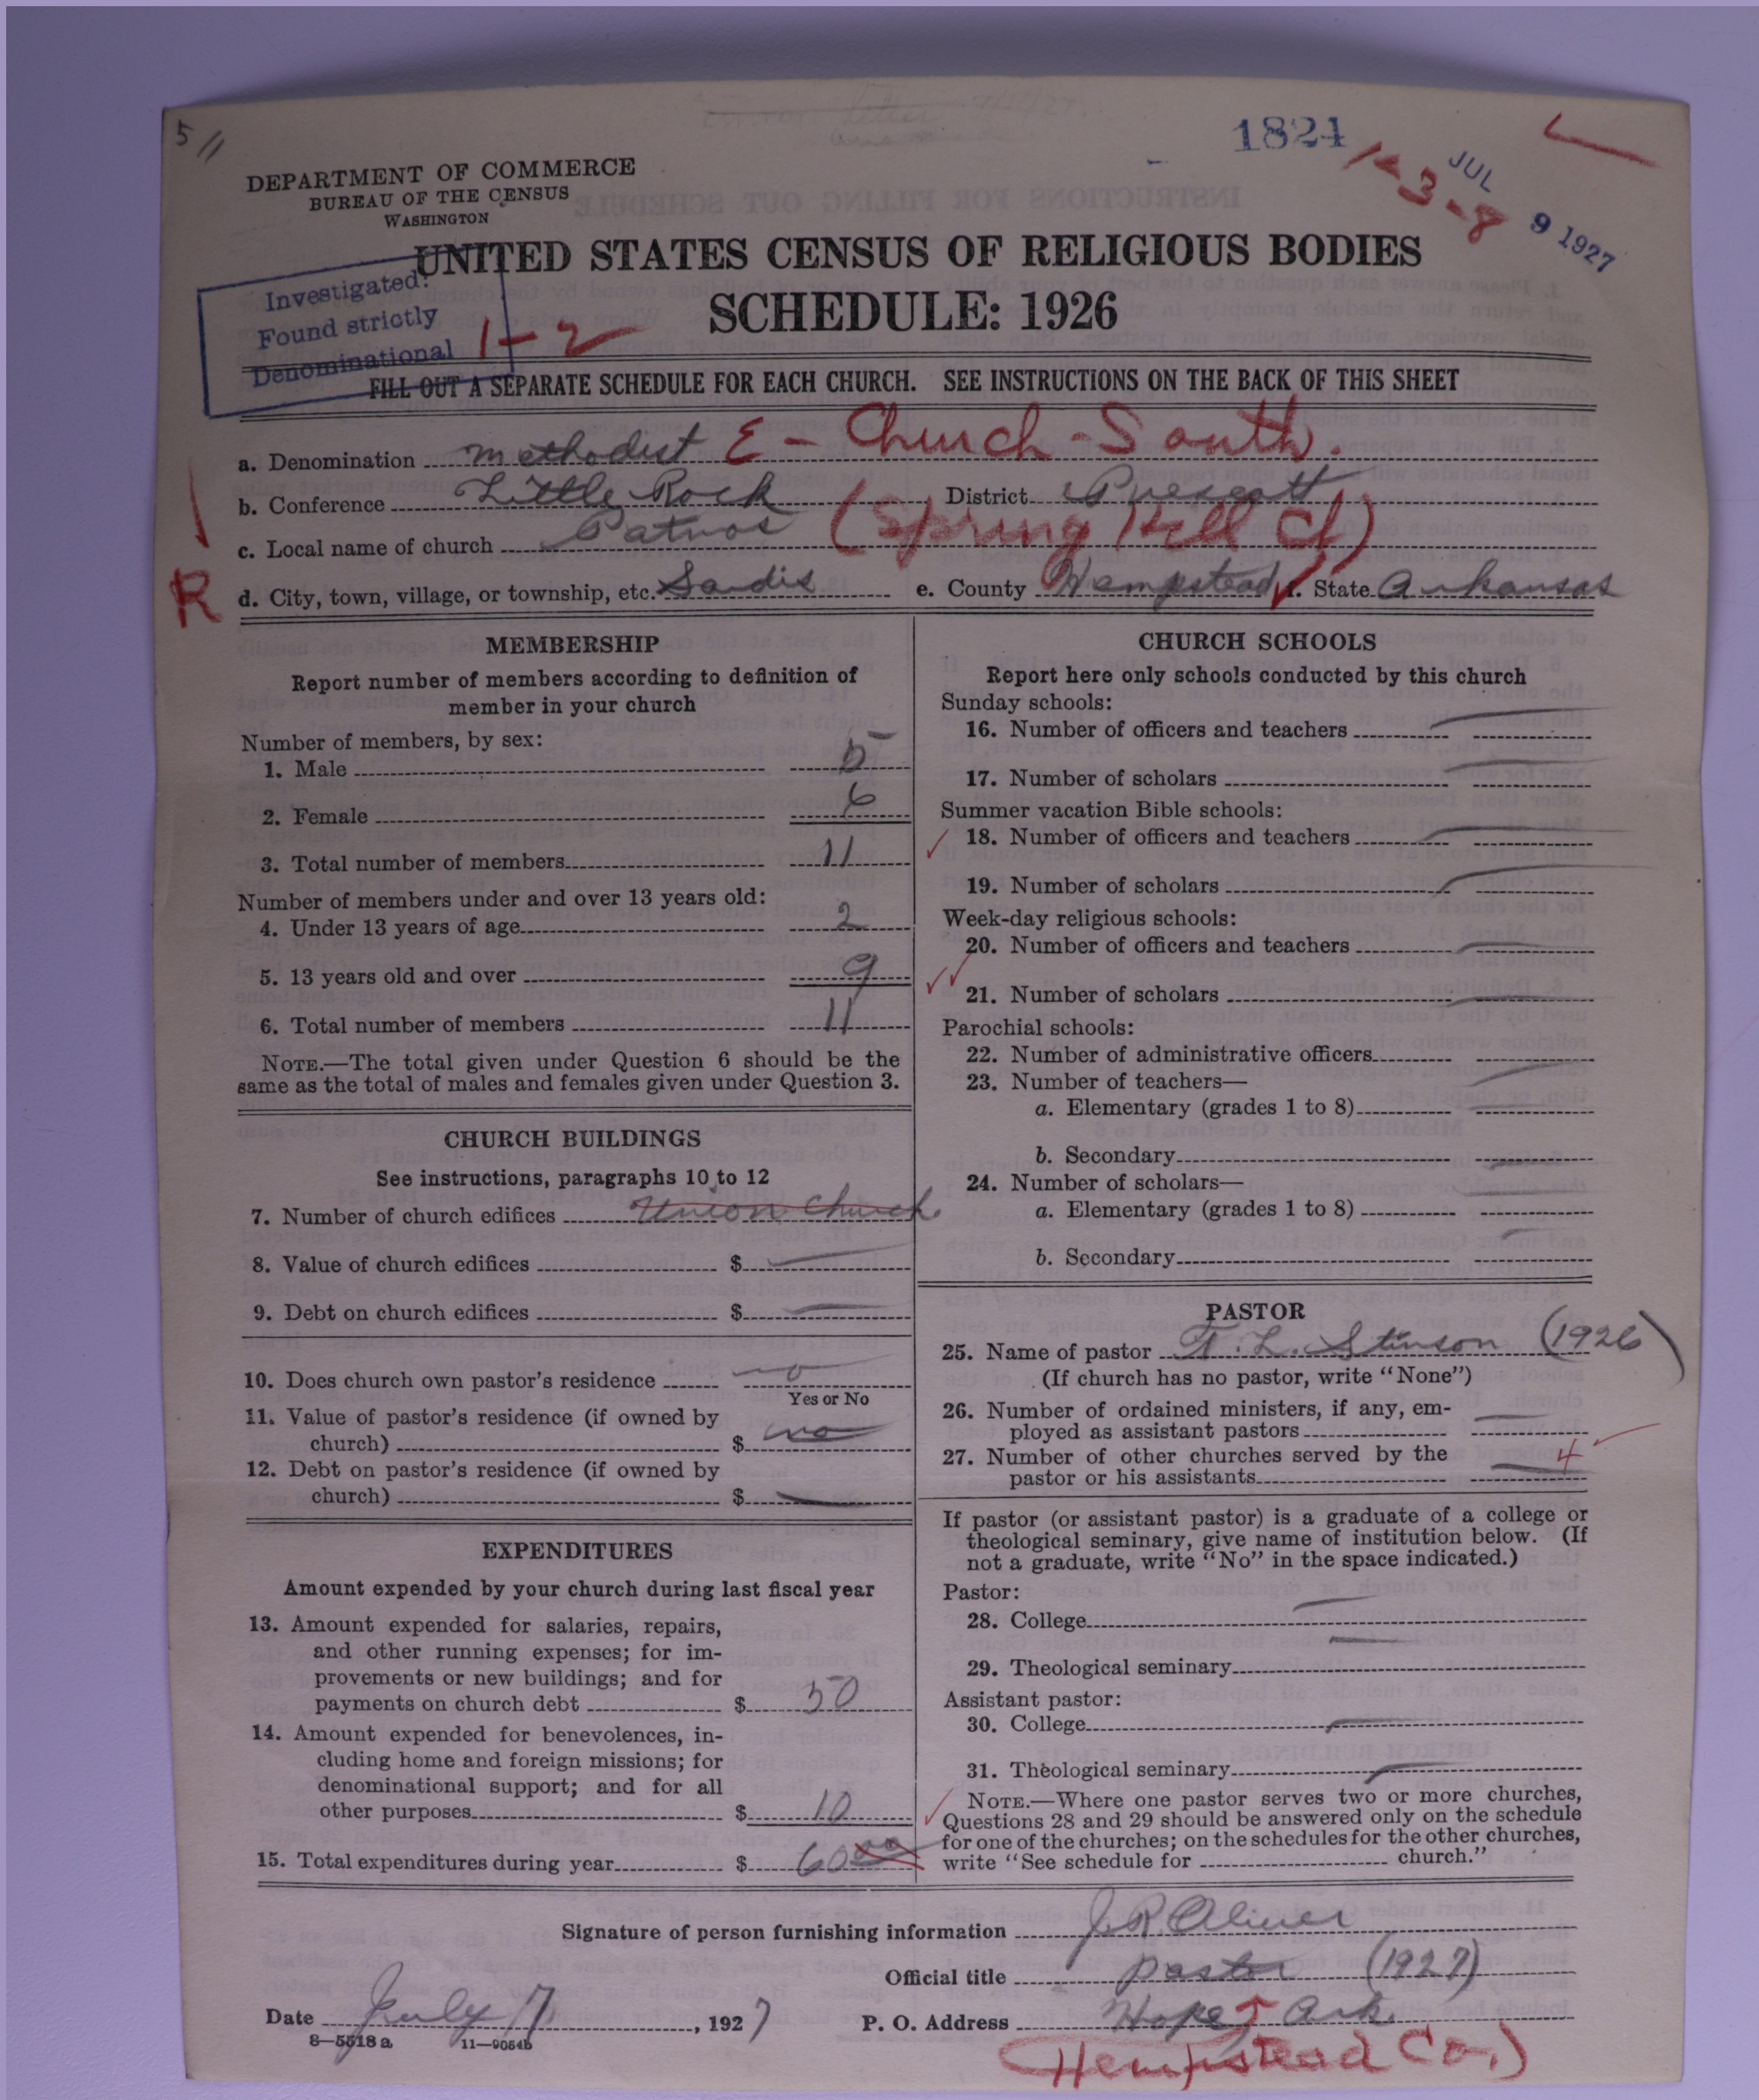 5 11
1824
1-3-8
JUL 9 1927
DEPARTMENT OF COMMERCE
BUREAU OF THE CENSUS
WASHINGTON
UNITED STATES CENSUS OF RELIGIOUS BODIES
SCHEDULE: 1926
Investigated:
Found strictly
Denominational
1-2
FILL OUT A SEPARATE SCHEDULE FOR EACH CHURCH. SEE INSTRUCTIONS ON THE BACK OF THIS SHEET
a. Denomination Methodist E - Church - South.
b. Conference Little Rock District Prescott
c. Local name of church Patmos (Spring Hill Ct)
R
d. City, town, village, or township, etc. Sardis e. County Hempstead f. State Arkansas
MEMBERSHIP
Report number of members according to definition of
member in your church
Number of members, by sex:
1. Male 5
2. Female 6
3. Total number of members 11
Number of members under and over 13 years old:
4. Under 13 years of age 2
5. 13 years old and over 9
6. Total number of members 11
NOTE.—The total given under Question 6 should be the
same as the total of males and females given under Question 3.
CHURCH BUILDINGS
See instructions, paragraphs 10 to 12
7. Number of church edifices Union Church
8. Value of church edifices $
9. Debt on church edifices $
10. Does church own pastor's residence no
Yes or No
11. Value of pastor's residence (if owned by
church) $ no
12. Debt on pastor's residence (if owned by
church) $
EXPENDITURES
Amount expended by your church during last fiscal year
13. Amount expended for salaries, repairs,
and other running expenses; for im-
provements or new buildings; and for
payments on church debt $ 50
14. Amount expended for benevolences, in-
cluding home and foreign missions; for
denominational support; and for all
other purposes $ 10
15. Total expenditures during year $ 60 00
CHURCH SCHOOLS
Report here only schools conducted by this church
Sunday schools:
16. Number of officers and teachers
17. Number of scholars
Summer vacation Bible schools:
18. Number of officers and teachers
19. Number of scholars
Week-day religious schools:
20. Number of officers and teachers
21. Number of scholars
Parochial schools:
22. Number of administrative officers
23. Number of teachers—
a. Elementary (grades 1 to 8)
b. Secondary
24. Number of scholars—
a. Elementary (grades 1 to 8)
b. Secondary
PASTOR
25. Name of pastor F. L. Stinson (1926)
(If church has no pastor, write "None")
26. Number of ordained ministers, if any, em-
ployed as assistant pastors
27. Number of other churches served by the
pastor or his assistants 4
If pastor (or assistant pastor) is a graduate of a college or
theological seminary, give name of institution below. (If
not a graduate, write "No" in the space indicated.)
Pastor:
28. College
29. Theological seminary
Assistant pastor:
30. College
31. Theological seminary
NOTE.—Where one pastor serves two or more churches,
Questions 28 and 29 should be answered only on the schedule
for one of the churches; on the schedules for the other churches,
write "See schedule for church."
Signature of person furnishing information J. R. Oliver
Official title pastor (1927)
Date July 7, 1927 P. O. Address Hope, Ark.
8—5518 a 11—9054b
(Hempstead Co.)